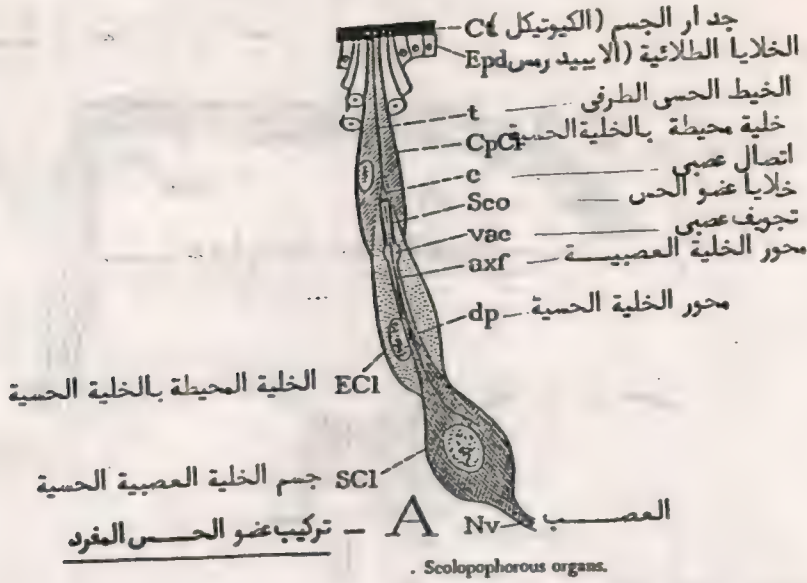 Ct جدار الجسم (الكيوتيكل)
Epd الخلايا الطلائية (الايبيدرمس
t الخيط الحسى الطرفى
CpCl خلية محيطة بالخلية الحسية
c اتصال عصبى
Sco خلايا عضو الحس
vac تجويف عصبى
axf محور الخلية العصبيــة
dp محور الخلية الحسية
ECl الخلية المحيطة بالخلية الحسية
SCl جسم الخلية العصبية الحسية
Nv العصــــب
A – تركيب عضو الحــس المفرد
. Scolopophorous organs.